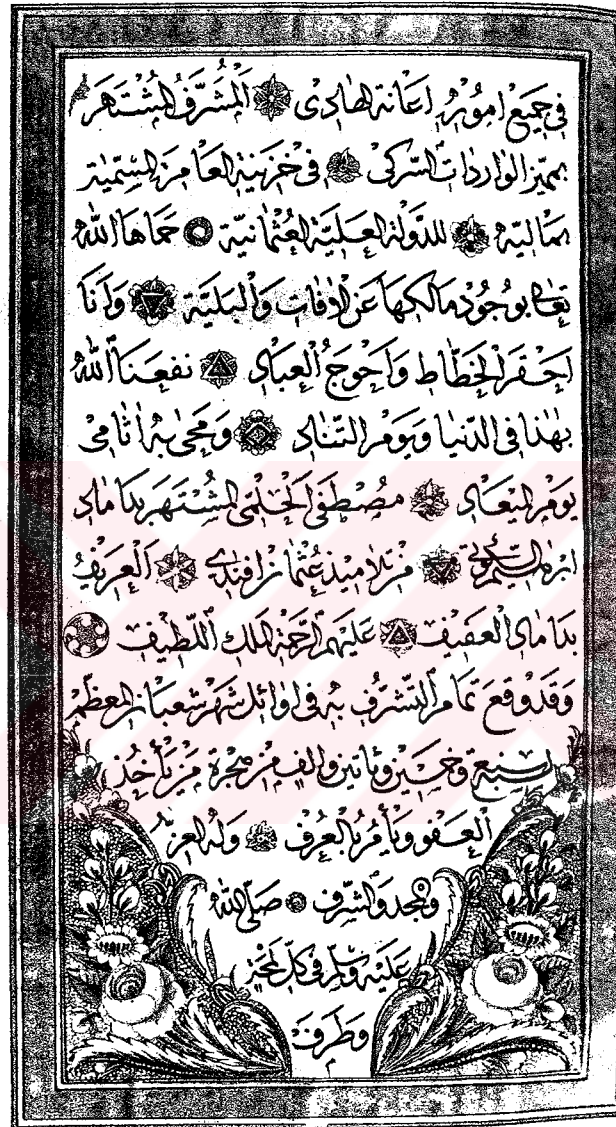 فى جميع اموره اعانة الهادى المشرف المشتهر
بمميز الواردات السركى فى خزينة العامرة السمية
بمالية للدولة العلية العثمانية حماها الله
تعالى بوجود مالكها عن الافات والبلية وانا
احقر الخطاط واحوج العباد نفعنا الله
بهذا فى الدنيا ويوم التناد ومحى به اثامى
يوم الميعاد مصطفى الحلمى المشتهر بداماد
ابراهيم من تلاميذ عثمان افندى العريف
بداماد العفيف عليهم الرحمة الملك اللطيف
وقد وقع تمام التشرف به فى اوائل شهر شعبان المعظم
لسنة وخمسين ومأتين والف من هجرة من يأخذ
العفو ويأمر بالعرف وله العز
والمجد والشرف صلى الله
عليه وسلم فى كل لمحة
وطرف